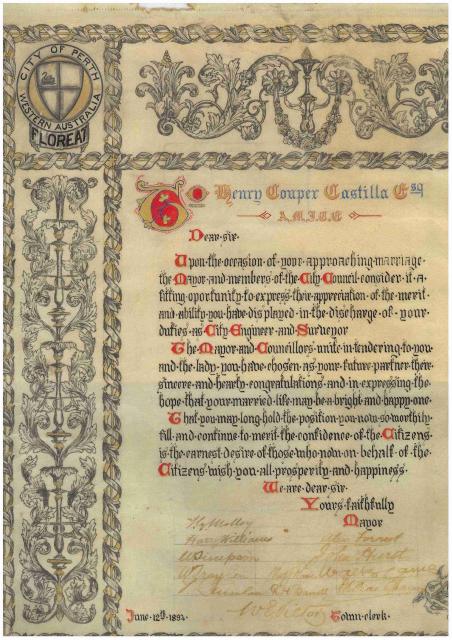 CITY OF PERTH
WESTERN AUSTRALIA
FLOREAT
To Henry Couper Castilla Esq
A.M.I.C.E
Dear·sir·
Upon·the·occasion·of·your·approaching·marriage·
the·Mayor·and·members·of·the·City·Council·consider·it·a·
fitting·oportunity·to·express·their·appreciation·of·the·merit·
and·ability·you·have·displayed·in·the·discharge·of·your·
duties·as·City·Engineer·and·Surveyor
The·Mayor·and·Councillors·unite·in·tendering·to·you·
and·the·lady·you·have·chosen·as·your·future·partner·their·
sincere·and·hearty·congratulations·and·in·expressing·the·
hope·that·your·married·life·may·be·a·bright·and·happy·one·
That·you·may·long·hold·the·position·you·now·so·worthily·
fill·and·continue·to·merit·the·confidence·of·the·Citizens·
is·the·earnest·desire·of·those·who·now·on·behalf·of·the·
Citizens·wish·you·all·prosperity·and·happiness·
We·are·dear·sir·
Yours·faithfully
Mayor
Molloy
Harry Williams Alex Forrest
W Simpson John Hurst
June·12th·1892· Town·clerk·